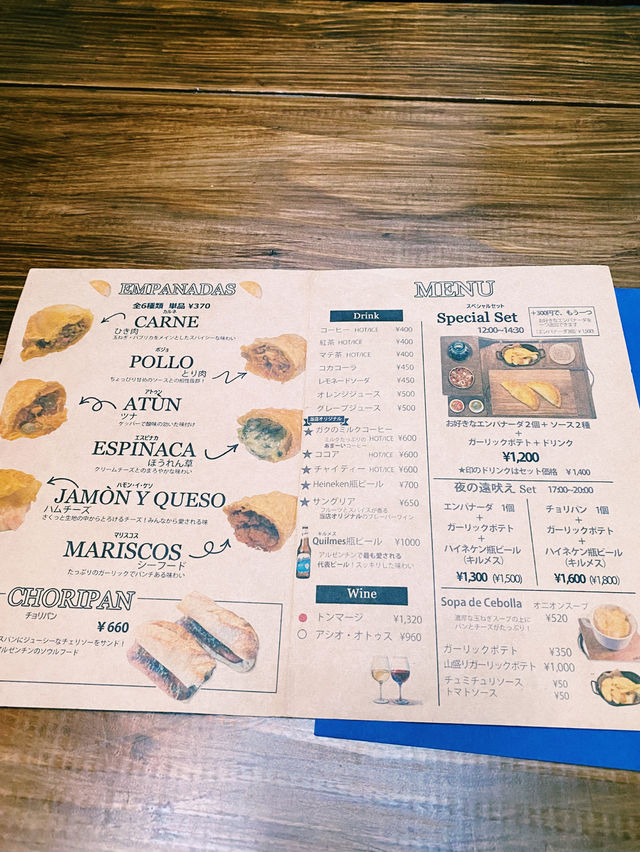 EMPANADAS
全6種類 単品 ¥370
カルネ
CARNE
ひき肉
玉ねぎ・パプリカをメインとしたスパイシーな味わい
ポジョ
POLLO
とり肉
ちょっぴり甘めのソースとの相性抜群!
アトゥン
ATUN
ツナ
ケッパーで酸味の効いた味付け
エスピナカ
ESPINACA
ほうれん草
クリームチーズとのまろやかな味わい
ハモン・イ・ケソ
JAMÒN Y QUESO
ハムチーズ
さくっと生地の中からとろけるチーズ!みんなから愛される味
マリスコス
MARISCOS
シーフード
たっぷりのガーリックでパンチある味わい
CHORIPAN
チョリパン
¥660
スパンにジューシーなチョリソーをサンド!
アルゼンチンのソウルフード
MENU
Drink
コーヒー HOT/ICE ¥400
紅茶 HOT/ICE ¥400
マテ茶 HOT/ICE ¥400
コカコーラ ¥450
レモネードソーダ ¥450
オレンジジュース ¥500
グレープジュース ¥500
当店オリジナル
★ガクのミルクコーヒー
ミルクたっぷりの
あま〜いコーヒー HOT/ICE ¥600
★ココア HOT/ICE ¥600
★チャイティー HOT/ICE ¥600
★Heineken瓶ビール ¥700
★サングリア ¥650
フルーツとスパイスが香る
当店オリジナルのフレーバーワイン
キルメス
Quilmes瓶ビール ¥1000
アルゼンチンで最も愛される
代表ビール!スッキリした味わい
Wine
トンマージ ¥1,320
アシオ・オトゥス ¥960
スペシャルセット
Special Set
12:00~14:30
+300円で、もう一つ
お好きなエンパナーダを
お好きなエンパナーダ2個+ソース2種
+
ガーリックポテト+ドリンク
¥1,200
★印のドリンクはセット価格 ¥1,400
夜の遠吠え Set 17:00~20:00
エンパナーダ 1個
+
ガーリックポテト
+
ハイネケン瓶ビール
(キルメス)
¥1,300 (¥1,500)
チョリパン 1個
+
ガーリックポテト
+
ハイネケン瓶ビール
(キルメス)
¥1,600 (¥1,800)
Sopa de Cebolla オニオンスープ
濃厚な玉ねぎスープの上に
パンとチーズがたっぷり!
¥520
ガーリックポテト ¥350
山盛りガーリックポテト ¥1,000
チュミチュリソース ¥50
トマトソース ¥50